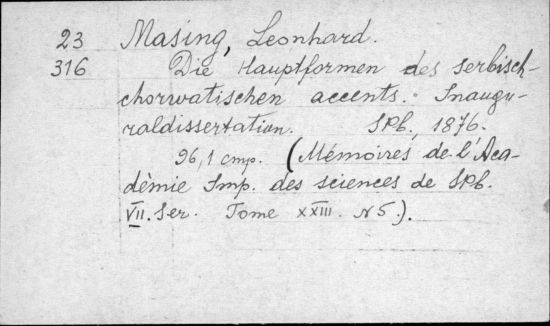 23 Masing, Leonhard.
316 Die Hauptformen des serbisch-
chorwatischen accents. Inaugu-
raldissertation. SPb., 1876.
96,1 стр. (Mémoires de l'Aca-
démie Imp. des sciences de SPb.
VII. Ser. Tome XXIII. N 5.).